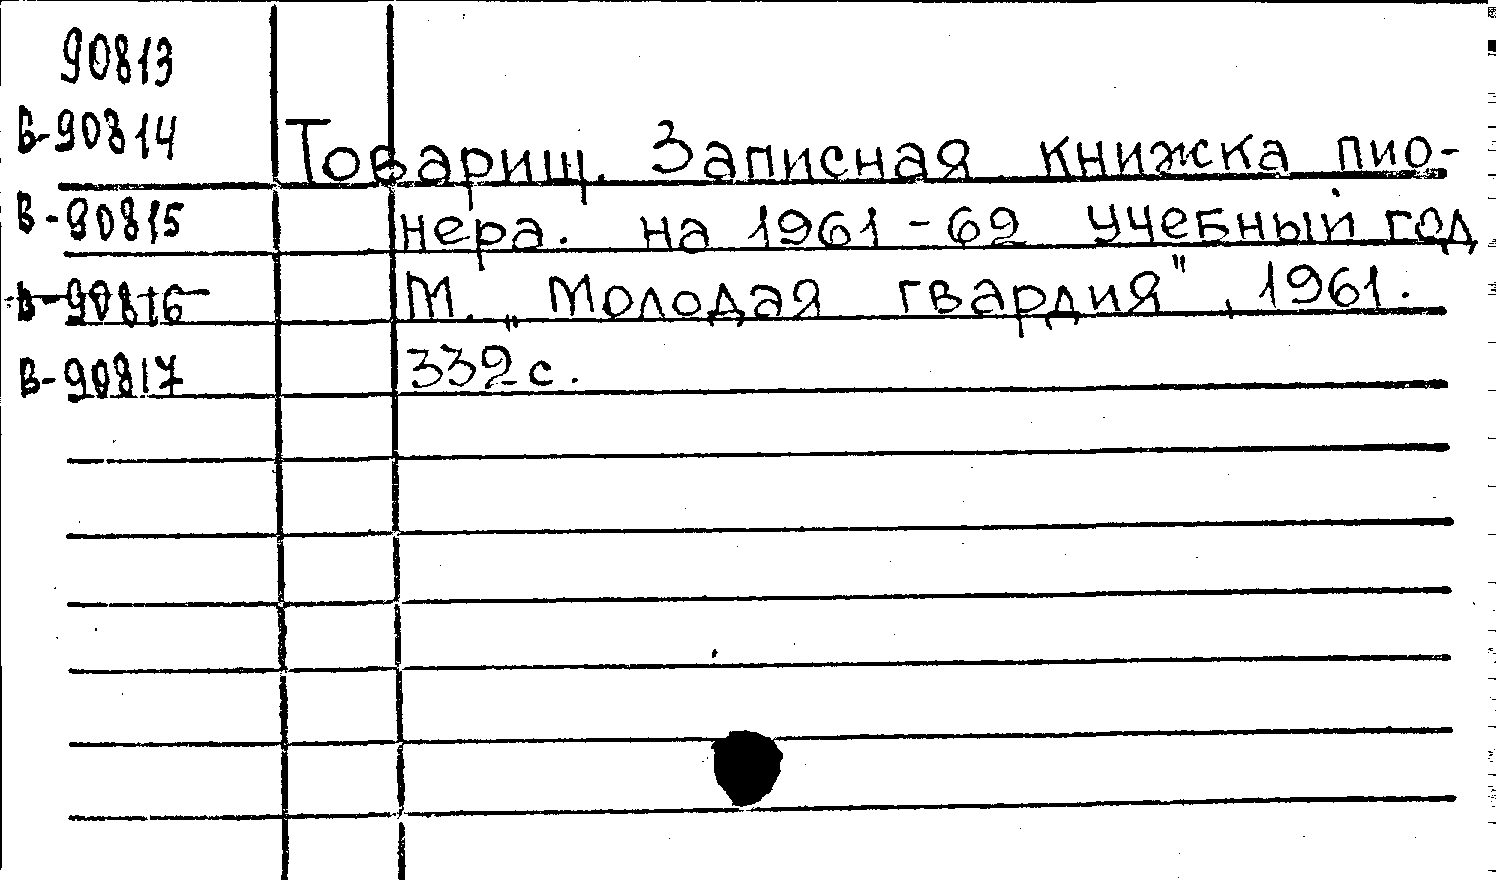 90813
В-90814
Товарищ. Записная книжка пио-
В-90815
нера. на 1961-62 учебный год
В-90816
М. „Молодая гвардия", 1961.
В-90817
332 с.